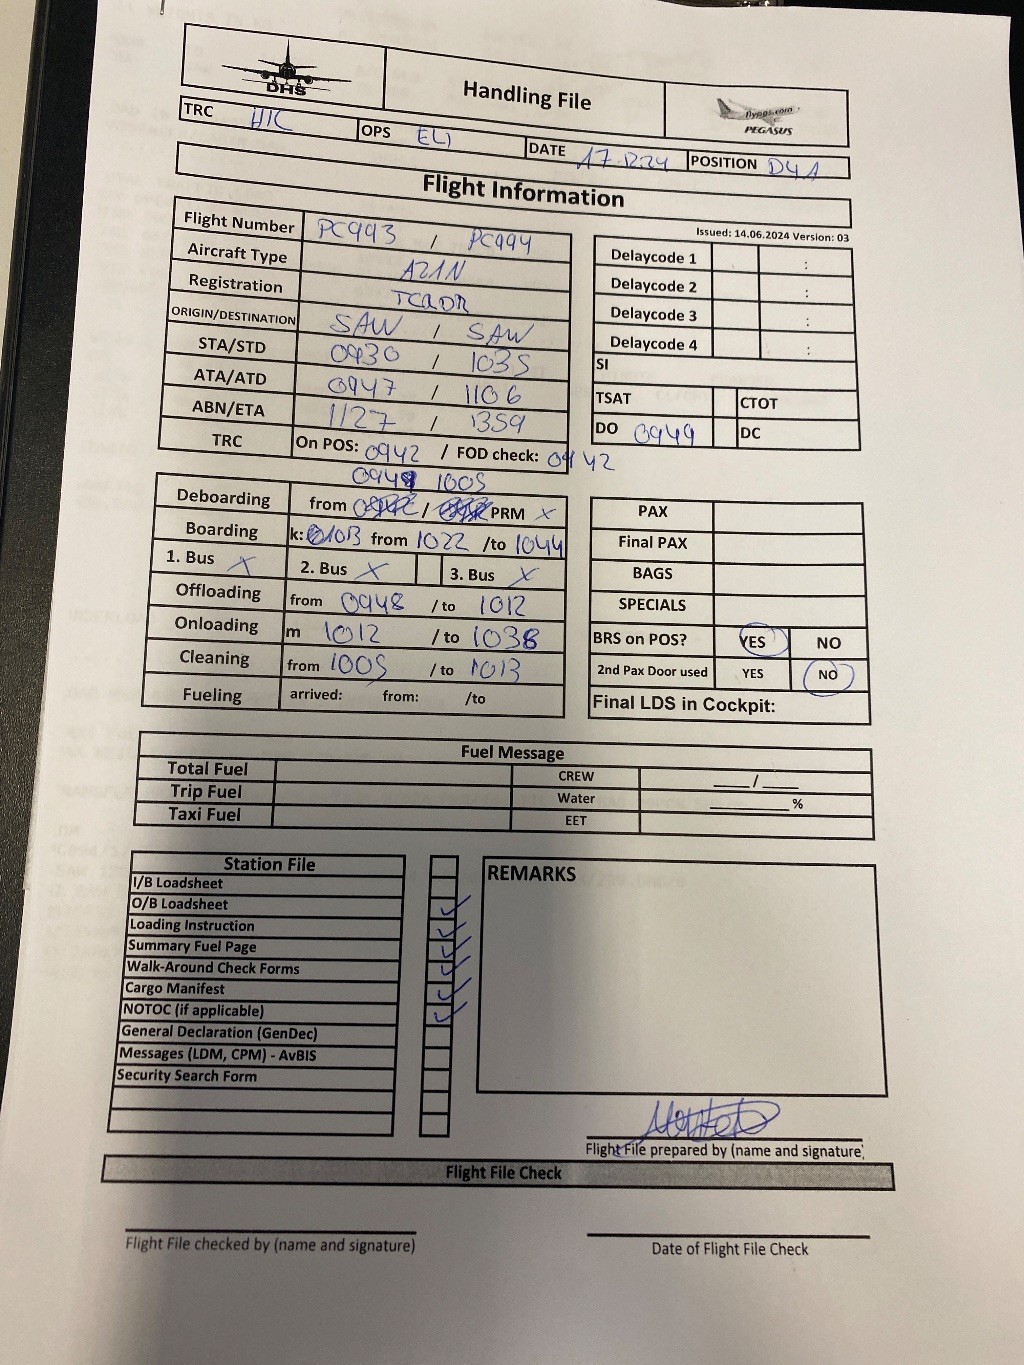 DHS
Handling File
flypgs.com
PEGASUS
TRC HIC OPS ELI DATE 17.12.24 POSITION D4A
Flight Information
Issued: 14.06.2024 Version: 03
Flight Number PC993 / PC994
Aircraft Type A21N
Registration TCRDR
ORIGIN/DESTINATION SAW / SAW
STA/STD 0930 / 1035
ATA/ATD 0947 / 1106
ABN/ETA 1127 / 1359
TRC On POS: 0942 / FOD check: 0942
Delaycode 1 :
Delaycode 2 :
Delaycode 3 :
Delaycode 4 :
SI
TSAT CTOT
DO 0949 DC
0948 1005
Deboarding from / PRM X
Boarding k: 1013 from 1022 /to 1044
1. Bus X 2. Bus X 3. Bus X
Offloading from 0948 /to 1012
Onloading m 1012 /to 1038
Cleaning from 1005 /to 1013
Fueling arrived: from: /to
PAX
Final PAX
BAGS
SPECIALS
BRS on POS? YES NO
2nd Pax Door used YES NO
Final LDS in Cockpit:
Fuel Message
Total Fuel CREW ____/____
Trip Fuel Water _________%
Taxi Fuel EET
Station File
I/B Loadsheet
O/B Loadsheet ✓
Loading Instruction ✓
Summary Fuel Page ✓
Walk-Around Check Forms ✓
Cargo Manifest ✓
NOTOC (if applicable) ✓
General Declaration (GenDec)
Messages (LDM, CPM) - AvBIS
Security Search Form
REMARKS
Flight File prepared by (name and signature)
Flight File Check
Flight File checked by (name and signature)
Date of Flight File Check